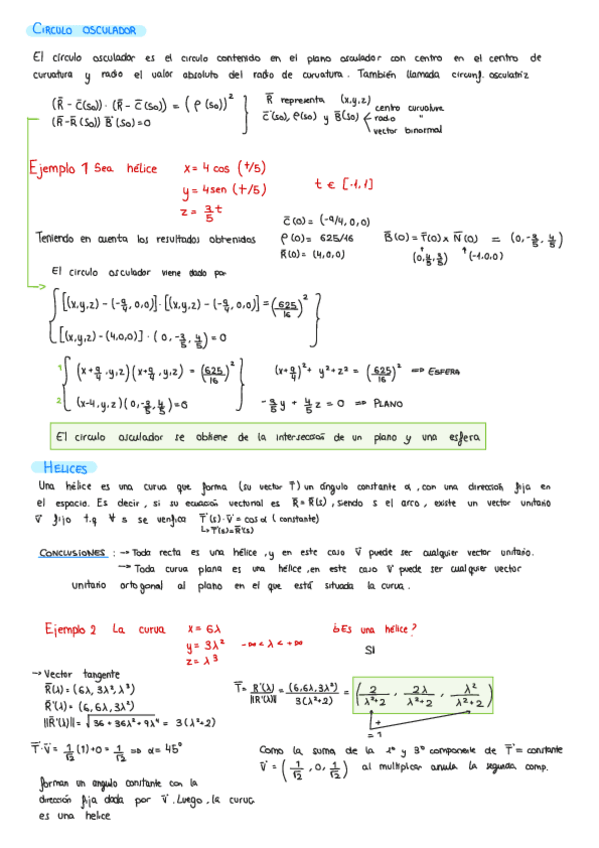 CIRCULO OSCULADOR
El círculo osculador es el circulo contenido en el plano osculador con centro en el centro de
curvatura y radio el valor absoluto del radio de curvatura. También llamada circunf. osculatriz
(R̄ - C̄(s₀)) · (R̄ - C̄(s₀)) = (ρ(s₀))²
(R̄ - R̄(s₀)) B̄(s₀) = 0
R̄ representa (x,y,z)
C̄(s₀), ρ(s₀) y B̄(s₀)
centro curvatura
radio "
vector binormal
Ejemplo 1 Sea hélice x = 4 cos (t/5)
y = 4 sen (t/5)
z = 3/5 t
t ∈ [-1,1]
Teniendo en cuenta los resultados obtenidos
C̄(0) = (-9/4, 0, 0)
ρ(0) = 625/16
R̄(0) = (4,0,0)
B̄(0) = T̄(0) x N̄(0) = (0, -3/5, 4/5)
(0, 4/5, 3/5) (-1,0,0)
El circulo osculador viene dado por
[(x,y,z) - (-9/4, 0,0)] · [(x,y,z) - (-9/4, 0,0)] = (625/16)²
[(x,y,z) - (4,0,0)] · (0, -3/5, 4/5) = 0
1 (x+9/4, y, z)(x+9/4, y, z) = (625/16)²
(x+9/4)² + y² + z² = (625/16)² ⇒ ESFERA
2 (x-4, y, z)(0, -3/5, 4/5) = 0
-3/5 y + 4/5 z = 0 ⇒ PLANO
El circulo osculador se obtiene de la intersección de un plano y una esfera
HELICES
Una hélice es una curva que forma (su vector T̄) un ángulo constante α, con una dirección fija en
el espacio. Es decir, si su ecuación vectorial es R̄ = R̄(s), siendo s el arco, existe un vector unitario
V̄ fijo t.q ∀ s se verifica T̄(s) · V̄ = cos α (constante)
↳ T̄(s) = R̄'(s)
CONCLUSIONES : → Toda recta es una hélice, y en este caso V̄ puede ser cualquier vector unitario.
→ Toda curva plana es una hélice, en este caso V̄ puede ser cualquier vector
unitario ortogonal al plano en el que está situada la curva.
Ejemplo 2 La curva x = 6λ
y = 3λ²
z = λ³
-∞ < λ < +∞
¿Es una hélice?
SI
→ Vector tangente
R̄(λ) = (6λ, 3λ², λ³)
R̄'(λ) = (6, 6λ, 3λ²)
||R̄'(λ)|| = √36 + 36λ² + 9λ⁴ = 3(λ²+2)
T̄ = R̄'(λ)/||R̄'(λ)|| = (6, 6λ, 3λ²)/3(λ²+2) = (2/λ²+2, 2λ/λ²+2, λ²/λ²+2)
+
= 1
T̄ · V̄ = 1/√2 (1) + 0 = 1/√2 ⇒ α = 45°
Como la suma de la 1ª y 3ª componente de T̄ = constante
V̄ = (1/√2, 0, 1/√2) al multiplicar anula la segunda comp.
forman un angulo constante con la
dirección fija dada por V̄. Luego, la curva
es una helice